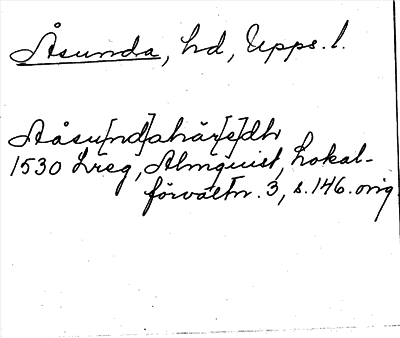 Åsunda, hd, Upps. l.
Aåsu[nd]ahär[e]dh
1530 Lreg, Almquist, Lokal-
förvaltn. 3, s. 146. orig.